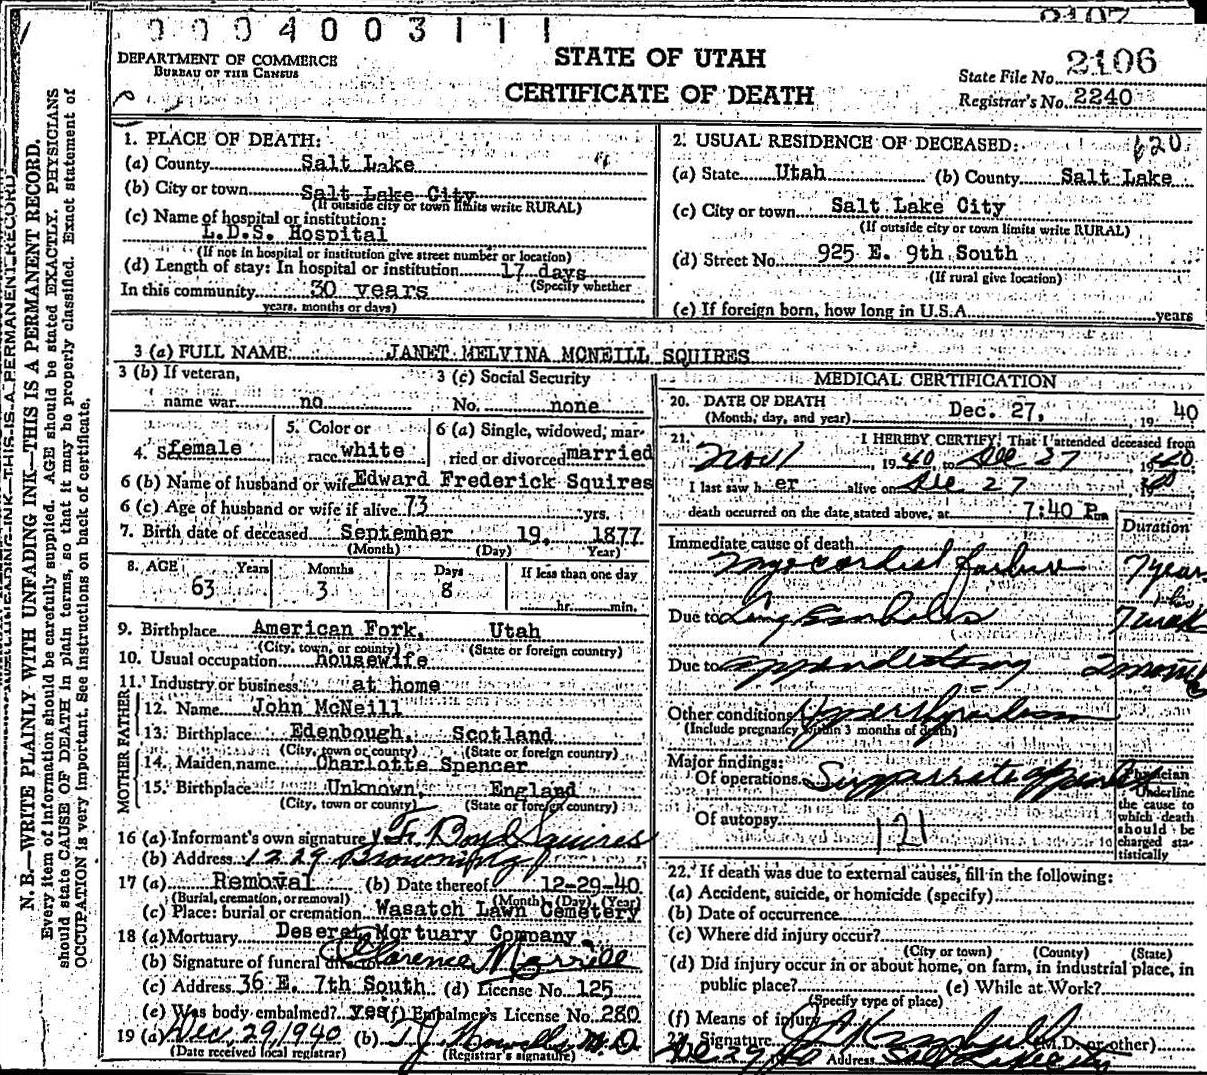 0004003111
2107
DEPARTMENT OF COMMERCE
BUREAU OF THE CENSUS
STATE OF UTAH
CERTIFICATE OF DEATH
State File No. 2106
Registrar's No. 2240
N. B.—WRITE PLAINLY WITH UNFADING INK—THIS IS A PERMANENT RECORD.
Every item of information should be carefully supplied. AGE should be stated EXACTLY. PHYSICIANS
should state CAUSE OF DEATH in plain terms, so that it may be properly classified. Exact statement of
OCCUPATION is very important. See instructions on back of certificate.
1. PLACE OF DEATH:
(a) County Salt Lake
(b) City or town Salt Lake City
(If outside city or town limits write RURAL)
(c) Name of hospital or institution:
L.D.S. Hospital
(If not in hospital or institution give street number or location)
(d) Length of stay: In hospital or institution 17 days
(Specify whether
In this community 30 years
years, months or days)
2. USUAL RESIDENCE OF DECEASED: 620
(a) State Utah (b) County Salt Lake
(c) City or town Salt Lake City
(If outside city or town limits write RURAL)
(d) Street No. 925 E. 9th South
(If rural give location)
(e) If foreign born, how long in U.S.A. years
3 (a) FULL NAME: JANET MELVINA MCNEILL SQUIRES
3 (b) If veteran,
name war no
3 (c) Social Security
No. none
4. Sex female
5. Color or
race white
6 (a) Single, widowed, mar-
ried or divorced married
6 (b) Name of husband or wife Edward Frederick Squires
6 (c) Age of husband or wife if alive 73 yrs.
7. Birth date of deceased September 19, 1877
(Month) (Day) Year)
8. AGE Years Months Days If less than one day
63 3 8 hr. min.
9. Birthplace American Fork, Utah
(City, town, or county) (State or foreign country)
10. Usual occupation housewife
11. Industry or business at home
FATHER
12. Name John McNeill
13. Birthplace Edenbough, Scotland
(City, town or county) (State or foreign country)
MOTHER
14. Maiden name Charlotte Spencer
15. Birthplace Unknown, England
(City, town or county) (State or foreign country)
16 (a) Informant's own signature F. Boyd Squires
(b) Address 1229 Browning
17 (a) Removal (b) Date thereof 12-29-40
(Burial, cremation, or removal) (Month) (Day) (Year)
(c) Place: burial or cremation Wasatch Lawn Cemetery
18 (a) Mortuary Deseret Mortuary Company
(b) Signature of funeral director Clarence Merrill
(c) Address 36 E. 7th South (d) License No. 125
(e) Was body embalmed? yes (f) Embalmer's License No. 280
19 (a) Dec. 29, 1940 (b) T. J. Howells M.D.
(Date received local registrar) (Registrar's signature)
MEDICAL CERTIFICATION
20. DATE OF DEATH
(Month, day, and year) Dec. 27, 19 40
21. I HEREBY CERTIFY! That I attended deceased from
Nov 1 19 40 to Dec 27 19 40
I last saw h er alive on Dec 27 19 40
death occurred on the date stated above, at 7:40 Pm
Duration
Immediate cause of death
Myocardial failure 7 years
Due to Lung Embolis
Due to appendectomy 2 months
Other conditions Hyperthyroidism
(Include pregnancy within 3 months of death)
Major findings:
Of operations Suppurative
Of autopsy 121
Physician
Underline
the cause to
which death
should be
charged sta-
tistically
22. If death was due to external causes, fill in the following:
(a) Accident, suicide, or homicide (specify)
(b) Date of occurrence
(c) Where did injury occur?
(City or town) (County) (State)
(d) Did injury occur in or about home, on farm, in industrial place, in
public place? (e) While at Work?
(Specify type of place)
(f) Means of injury
Signature (M.D. or other)
Address Salt Lake City